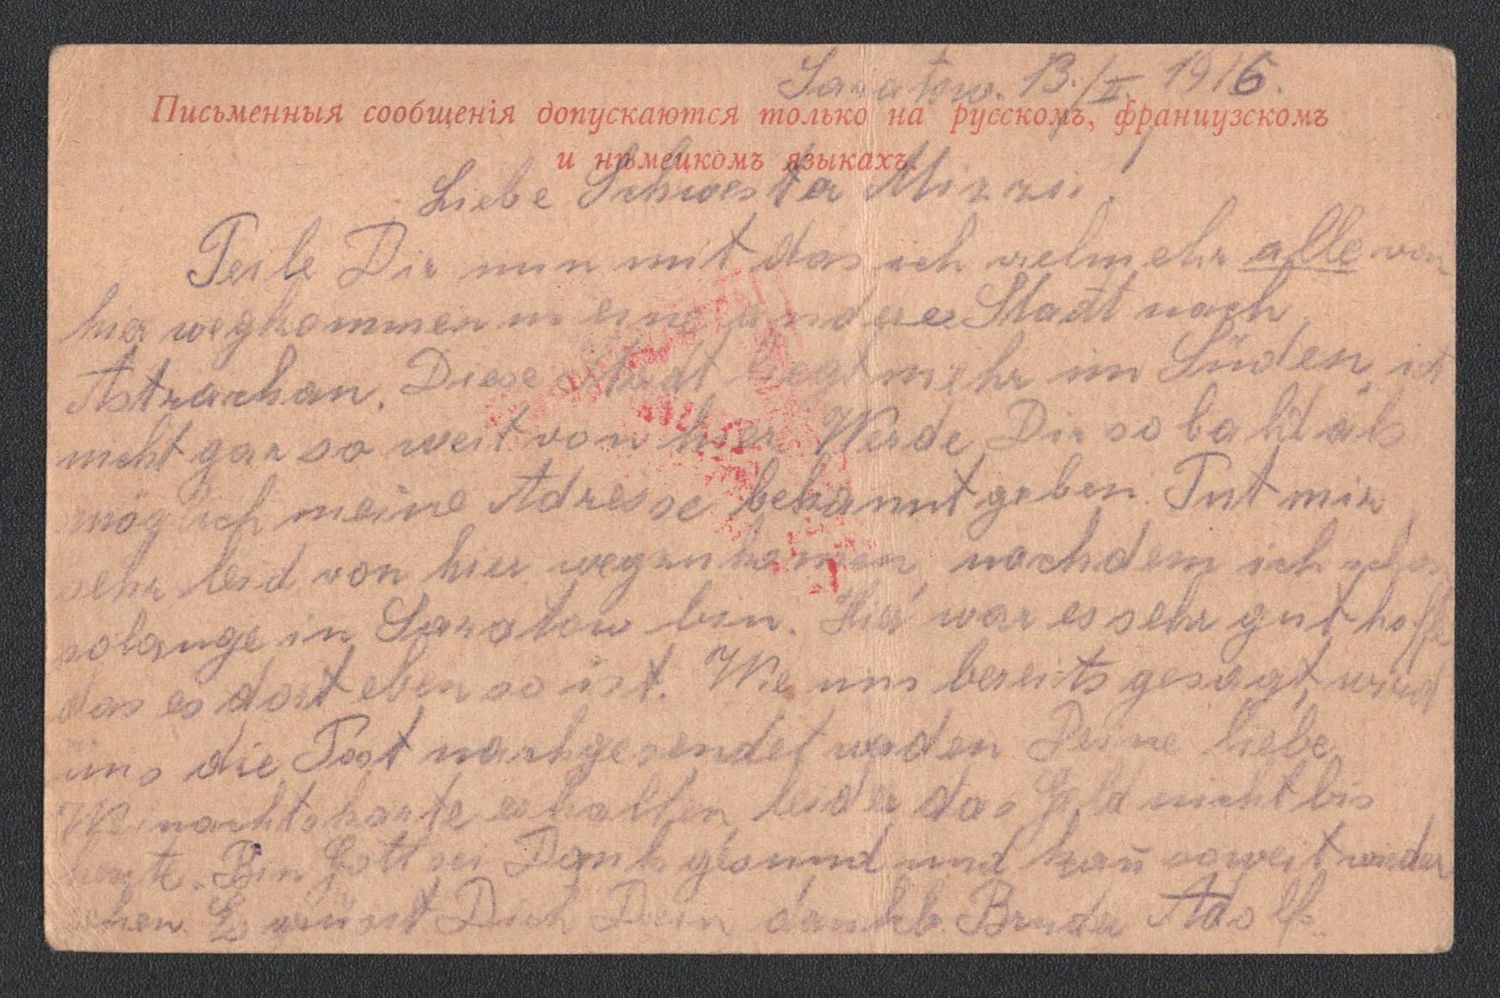 Saratow. 13./II. 1916.
Письменныя сообщенія допускаются только на русскомъ, французскомъ
и нѣмецкомъ языкахъ.
Liebe Schwester Mizzi!
Teile Dir nun mit das ich vielmehr alle von
hier wegkommen in eine andere Stadt nach
Astrachan. Diese Stadt liegt mehr im Süden, ist
nicht gar so weit von hier. Werde Dir so bald als
möglich meine Adresse bekannt geben. Tut mir
sehr leid von hier wegzukommen, nachdem ich schon
solange in Saratow bin. Hier war es sehr gut hoffe
das es dort eben so ist. Wie uns bereits gesagt, wird
uns die Post nachgesendet werden. Deine liebe
Weinachtskarte erhalten leider das Geld nicht bis
heute. Bin Gott sei Dank gesund und kan̄ soweit wieder
gehen. Es grüsst Dich Dein dankb. Bruder Adolf.